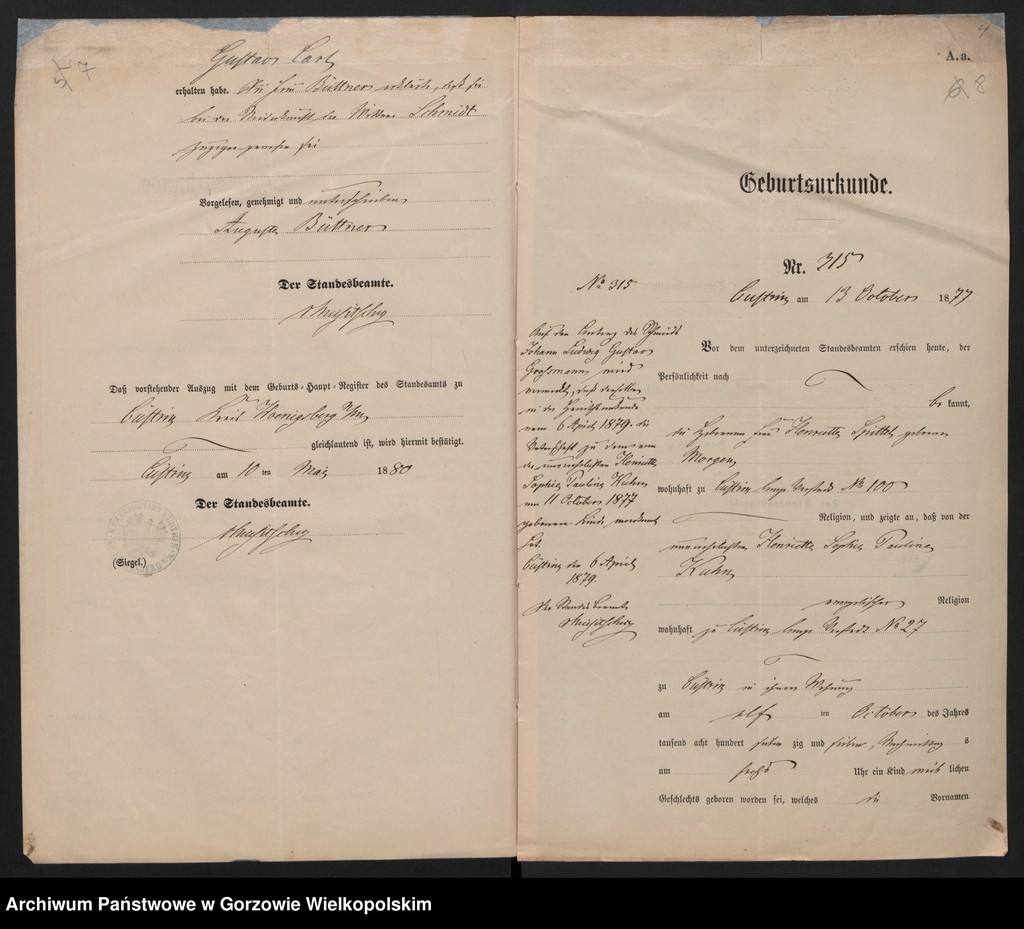 7
Gustav Carl
erhalten habe. Die Frau Büttner erklärte, daß sie
bei der Niederkunft der Wittwe Schmidt
zugegen gewesen sei
Vorgelesen, genehmigt und unterschrieben
Auguste Büttner
Der Standesbeamte.
Daß vorstehender Auszug mit dem Geburts-Haupt-Register des Standesamts zu
Cüstrin Kreis Koenigsberg N/m
gleichlautend ist, wird hiermit bestätigt.
Cüstrin am 10 ten Mai 1880
Der Standesbeamte.
(Siegel.)
4
A. a.
8
Geburtsurkunde.
Nr. 315
Cüstrin am 13 October 1877
Vor dem unterzeichneten Standesbeamten erschien heute, der
Persönlichkeit nach
bekannt,
die Hebamme Frau Henriette Spittel geborene
Morgen
wohnhaft zu Cüstrin lange Vorstadt No 100
Religion, und zeigte an, daß von der
unverehelichten Henriette Sophie Pauline
Kuhn
evangelischer Religion
wohnhaft zu Cüstrin lange Vorstadt No 27
zu Cüstrin in ihrer Wohnung
am elf ten October des Jahres
tausend acht hundert sieben zig und sieben, Nachmittag s
um sechs Uhr ein Kind weib lichen
Geschlechts geboren worden sei, welches die Vornamen
No 315
Auf den Antrag des Schmieds
Johann Ludwig Gustav
Grossmann wird
vermerkt, daß derselbe
in der
vom 6 April 1879 die
Vaterschaft zu dem von
der unverehelichten Henriette
Sophie Pauline Kuhn
am 11 October 1877
geborenen Kinde, anerkannt
hat.
Cüstrin den 6 April
1879.
Der Standesbeamte
Archiwum Państwowe w Gorzowie Wielkopolskim